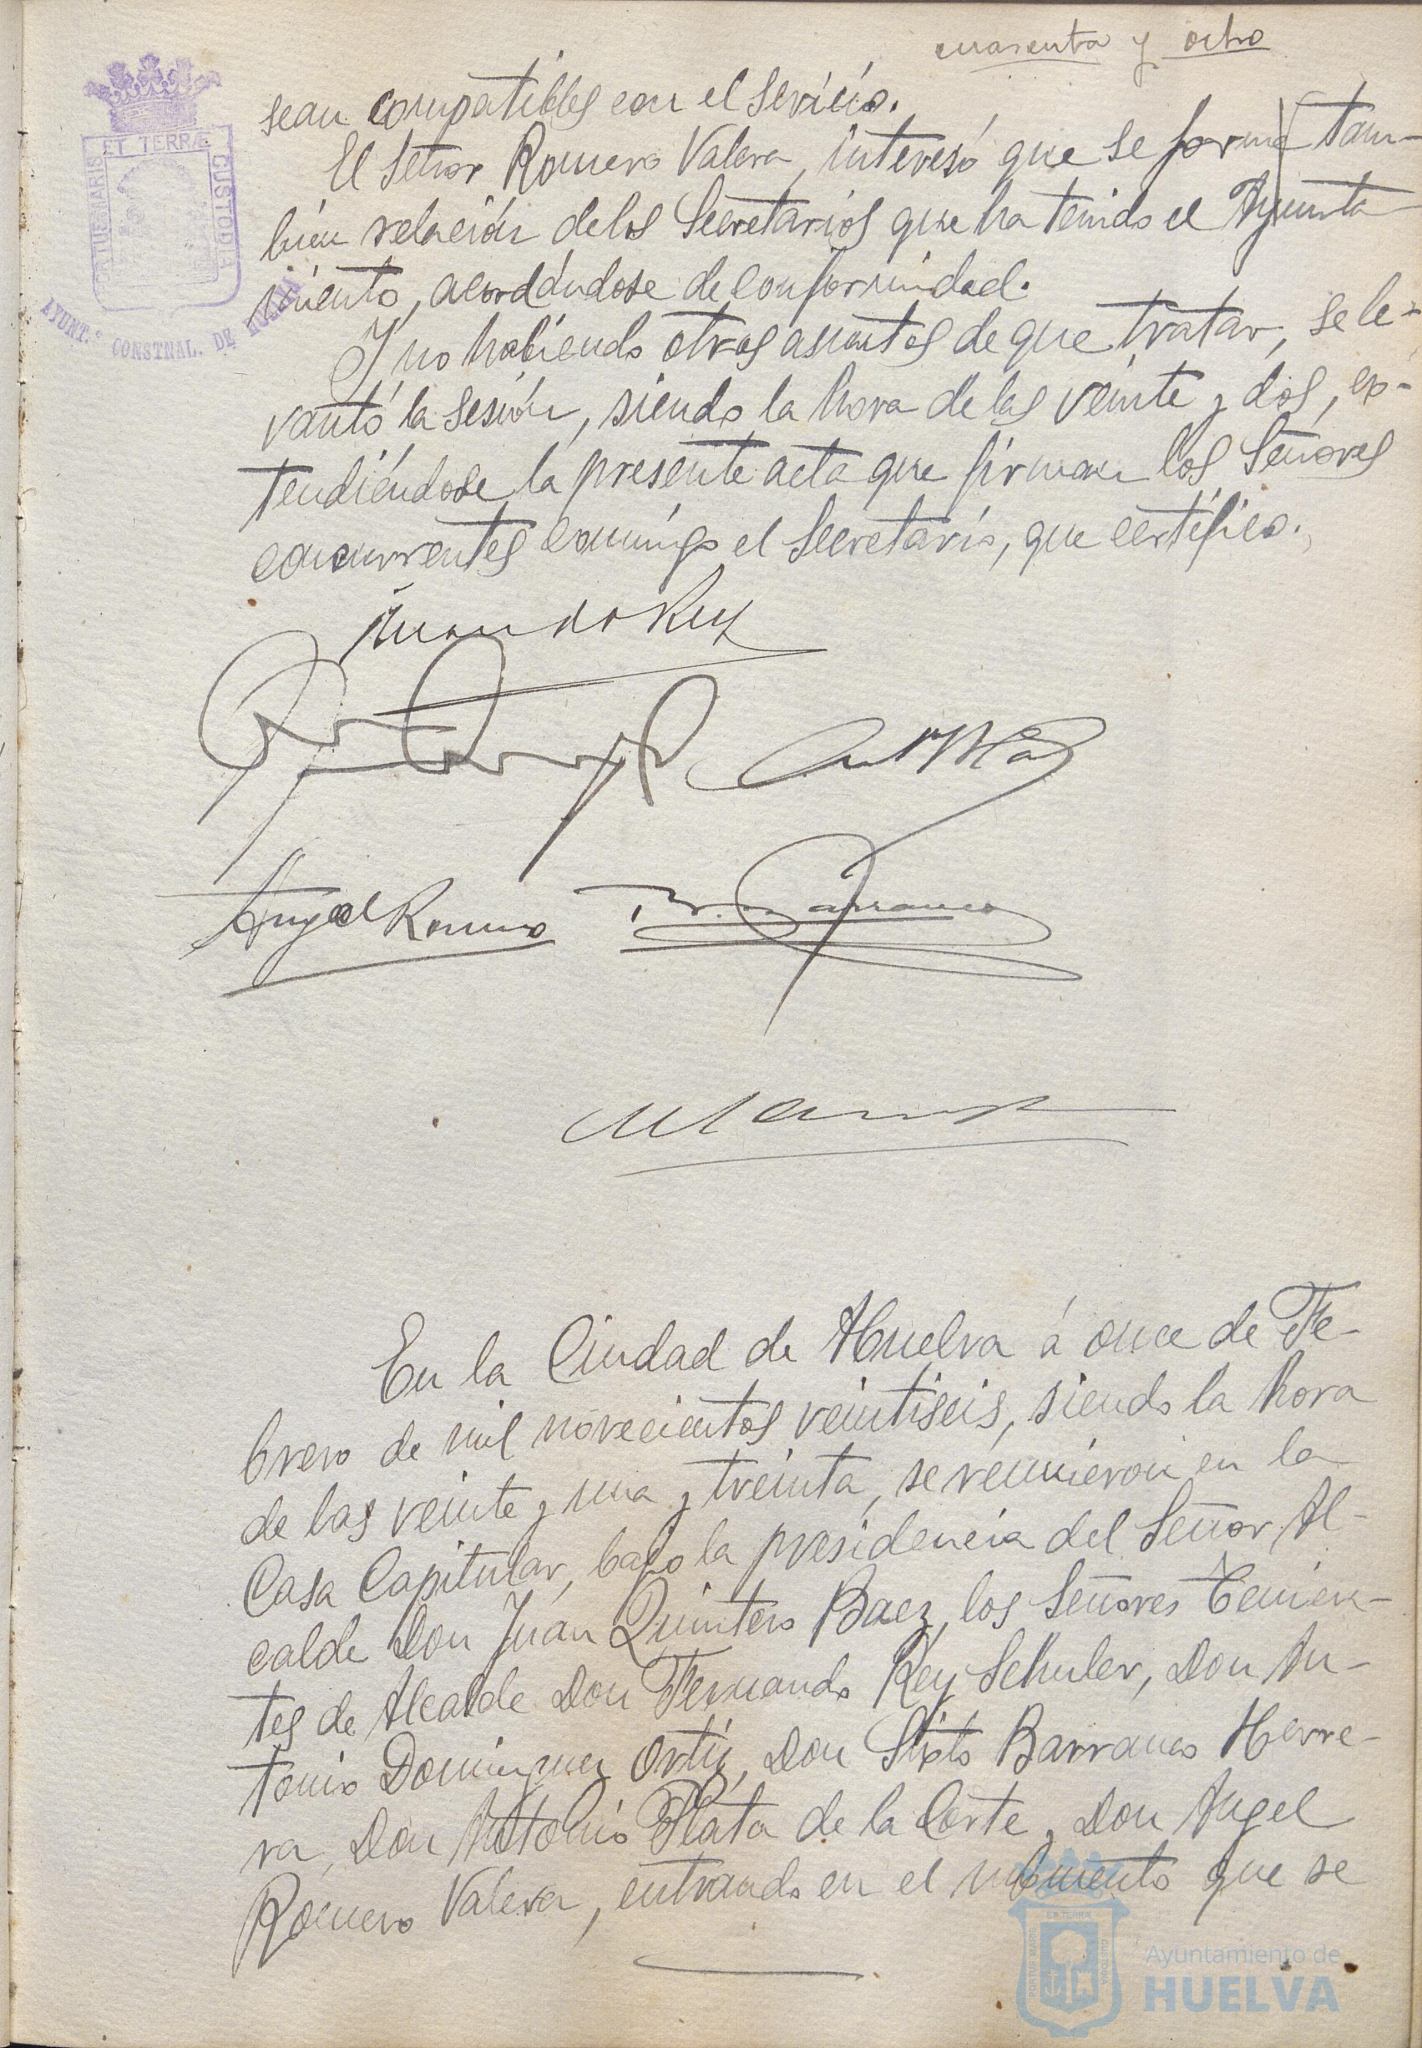 cuarenta y ocho
sean compatibles con el servicio.
El Señor Romero Valera, interesó que se forme tam-
bién relación de los Secretarios que ha tenido el Ayunta
miento, acordándose de conformidad.
Y no habiendo otros asuntos de que tratar, se le-
vantó la sesión, siendo la hora de las veinte y dos, ex-
tendiéndose la presente acta que firman los Señores
concurrentes conmigo el Secretario, que certifico.
PORTUS MARIS ET TERRÆ CUSTODIA
AYUNT.º CONSTNAL. DE HUELVA
Angel Romero
Barranco
En la Ciudad de Huelva á once de Fe-
brero de mil novecientos veintiseis, siendo la hora
de las veinte y una y treinta, se reunieron en la
Casa Capitular, bajo la presidencia del Señor Al-
calde Don Juan Quintero Baez, los Señores Tenien-
tes de Alcalde Don Fernando Rey Schuler, Don An-
tonio Dominguez Ortiz, Don Sixto Barranco Herre-
ra, Don Antonio Plata de la Corte y Don Angel
Romero Valera, entrando en el momento que se
PORTUS MARIS ET TERRÆ CUSTODIA
Ayuntamiento de
HUELVA